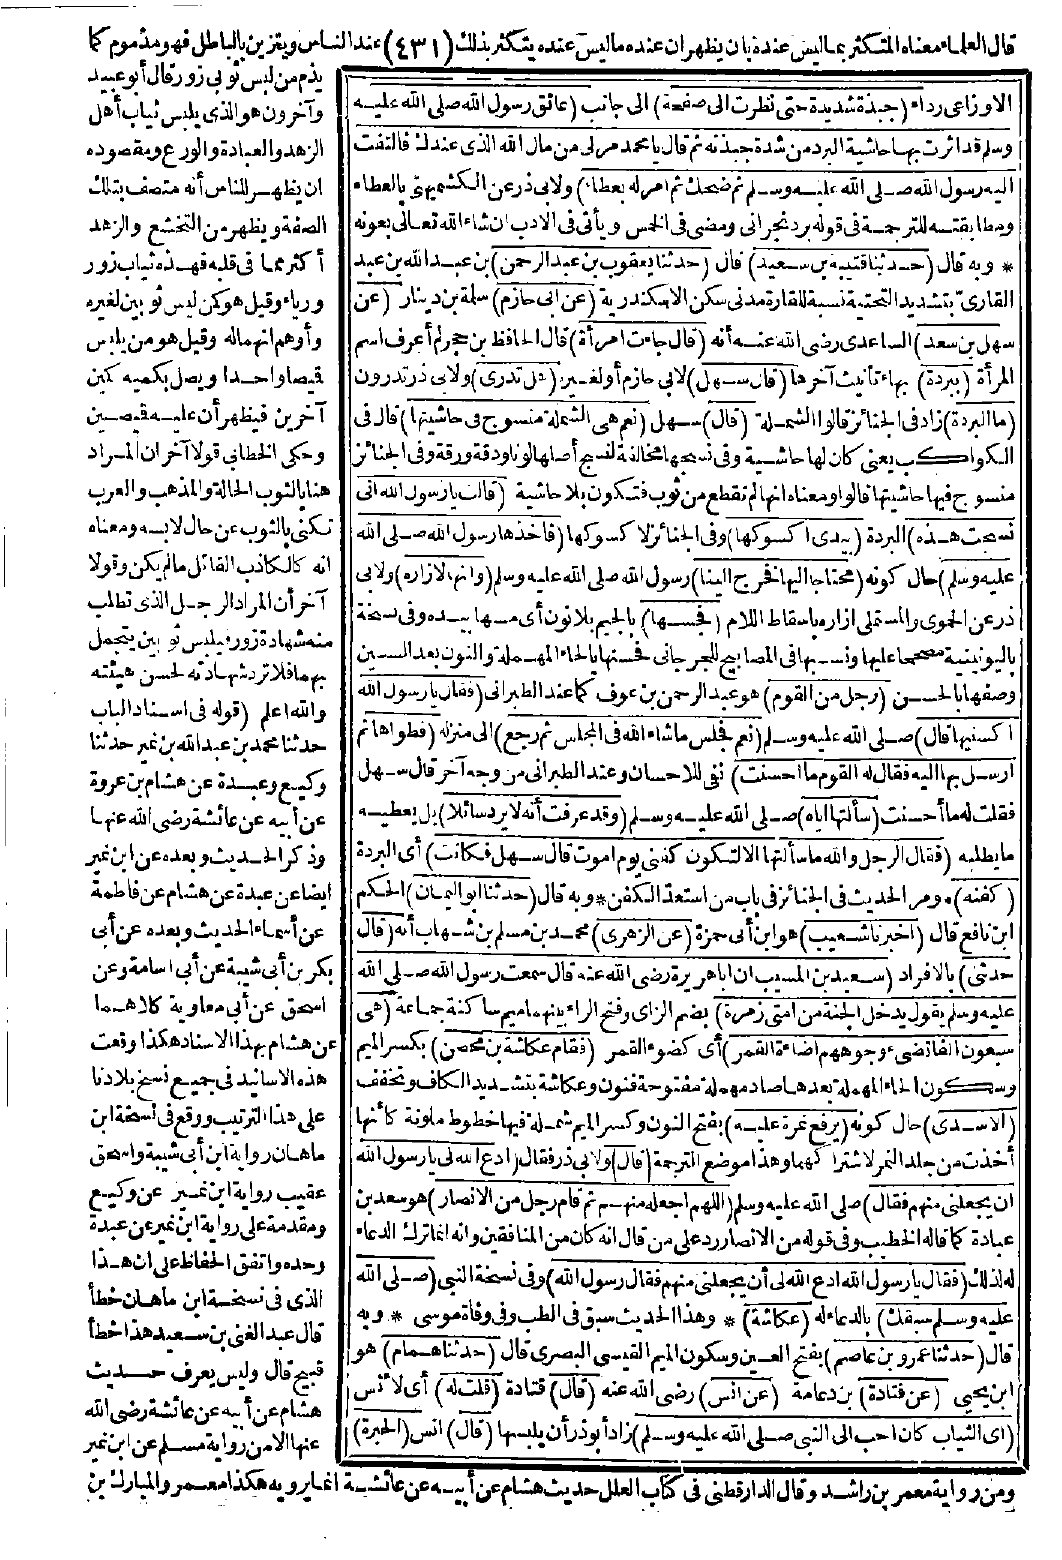 قال العلماء معناه المتكثر بما ليس عنده بان يظهر ان عنده ما ليس عنده يتكثر بذلك (٤٣١) عند الناس ويتزين بالباطل فهو مذموم كما
يذم من لبس ثوبي زور قال أبو عبيد
وآخرون هو الذي يلبس ثياب أهل
الزهد والعبادة والورع ومقصوده
ان يظهر للناس أنه متصف بتلك
الصفة ويظهر من التخشع والزهد
أكثر مما في قلبه فهذه ثياب زور
ورياء وقيل هو كمن لبس ثوبين لغيره
وأوهم انهما له وقيل هو من يلبس
قيصا واحدا ويصل بكميه كمين
آخرين فيظهر أن عليه قيصين
وحكى الخطابي قولا آخر ان المراد
هنا بالثوب الحالة والمذهب والعرب
تكنى بالثوب عن حال لابسه ومعناه
انه كالكاذب القائل ما لم يكن وقولا
آخر أن المراد الرجل الذي تطلب
منه شهادة زور فيلبس ثوبين يتجمل
بهما فلا ترد شهادته لحسن هيئته
والله اعلم (قوله في اسناد الباب
حدثنا محمد بن عبد الله بن نمير حدثنا
وكيع وعبدة عن هشام بن عروة
عن أبيه عن عائشة رضى الله عنها
وذكر الحديث وبعده عن ابن نمير
ايضا عن عبدة عن هشام عن فاطمة
عن أسماء الحديث وبعده عن أبي
بكر بن أبي شيبة عن أبي اسامة وعن
اسحق عن أبي معاوية كلاهما
عن هشام بهذا الاسناد هكذا وقعت
هذه الاسانيد في جميع نسخ بلادنا
على هذا الترتيب ووقع في نسخة ابن
ماهان رواية ابن أبي شيبة واسحق
عقيب رواية ابن نمير عن وكيع
ومقدمة على رواية ابن نمير عن عبدة
وحده واتفق الحفاظ على ان هذا
الذى في نسخة ابن ماهان خطأ
قال عبد الغني بن سعيد هذا خطأ
قبيح قال وليس يعرف حديث
هشام عن أبيه عن عائشة رضى الله
عنها الا من رواية مسلم عن ابن نمير
ومن رواية معمر بن راشد وقال الدارقطني في كتاب العلل حديث هشام عن أبيه عن عائشة انما يرويه هكذا معمر والمبارك بن
الاوزاعى رداء (جبذة شديدة حتى نظرت الى صفحة) الى جانب (عاتق رسول الله صلى الله عليه
وسلم قد اثرت بها حاشية البرد من شدة جبذته ثم قال يا محمد مر لى من مال الله الذى عندك فالتفت
اليه رسول الله صلى الله عليه وسلم ثم ضحك ثم امر له بعطاء) ولابى ذر عن الكشميهنى بالعطاء
ومطابقته للترجمة فى قوله برد نجرانى ومضى فى الخمس ويأتى فى الادب ان شاء الله تعالى بعونه
* وبه قال (حدثنا قتيبة بن سعيد) قال (حدثنا يعقوب بن عبد الرحمن) بن عبد الله بن عبد
القارىّ بتشديد التحتية نسبة للقارة مدنى سكن الاسكندرية (عن ابى حازم) سلمة بن دينار (عن
سهل بن سعد) الساعدى رضى الله عنه أنه (قال جاءت امرأة) قال الحافظ بن حجر لم أعرف اسم
المرأة (ببردة) بهاء تأنيث آخرها (قال سهل) لابى حازم أو لغيره (هل تدرى) ولابى ذر تدرون
(ما البردة) زاد فى الجنائز قالوا الشملة (قال) سهل (نعم هى الشملة منسوج فى حاشيتها) قال فى
الكواكب يعنى كان لها حاشية وفى نسجها مخالفة لنسج أصلها لونا ودقة ورقة وفى الجنائز
منسوج فيها حاشيتها قالوا ومعناه انها لم تقطع من ثوب فتكون بلا حاشية (قالت يا رسول الله انى
نسجت هذه) البردة (بيدى اكسوكها) وفى الجنائز لاكسوكها (فاخذها رسول الله صلى الله
عليه وسلم) حال كونه (محتاجا اليها فخرج الينا) رسول الله صلى الله عليه وسلم (وانها لازاره) ولابى
ذر عن الحموى والمستملى ازاره باسقاط اللام (فجسها) بالجيم بلا نون أى مسها بيده وفى نسخة
باليونينية مصححا عليها ونسبها فى المصابيح للجرجانى فحسنها بالحاء المهملة والنون بعد السين
وصفها بالحسن (رجل من القوم) هو عبد الرحمن بن عوف كما عند الطبرانى (فقال يا رسول الله
اكسنيها قال) صلى الله عليه وسلم (نعم فجلس ما شاء الله فى المجلس ثم رجع) الى منزله (فطواها ثم
ارسل بها اليه فقال له القوم ما احسنت) نفى للاحسان وعند الطبرانى من وجه آخر قال سهل
فقلت له ما أحسنت (سألتها اياه) صلى الله عليه وسلم (وقد عرفت أنه لا يرد سائلا) بل يعطيه
ما يطلبه (فقال الرجل والله ما سألتها الا لتكون كفنى يوم اموت قال سهل فكانت) أى البردة
(كفنه) * ومر الحديث فى الجنائز فى باب من استعد الكفن * وبه قال (حدثنا ابو اليمان) الحكم
ابن نافع قال (اخبرنا شعيب) هو ابن أبى حمزة (عن الزهرى) محمد بن مسلم بن شهاب أنه (قال
حدثنى) بالافراد (سعيد بن المسيب ان ابا هريرة رضى الله عنه قال سمعت رسول الله صلى الله
عليه وسلم يقول يدخل الجنة من امتى زمرة) بضم الزاى وفتح الراء بينهما ميم ساكنة جماعة (هى
سبعون الفا تضىء وجوههم اضاءة القمر) أى كضوء القمر (فقام عكاشة بن محصن) بكسر الميم
وسكون الحاء المهملة بعدها صاد مهملة مفتوحة فنون وعكاشة بتشديد الكاف وتخفف
(الاسدى) حال كونه (يرفع نمرة عليه) بفتح النون وكسر الميم شملة فيها خطوط ملونة كأنها
أخذت من جلد النمر لاشتراكهما وهذا موضع الترجمة (قال) ولابى ذر فقال (ادع الله لى يا رسول الله
ان يجعلنى منهم فقال) صلى الله عليه وسلم (اللهم اجعله منهم ثم قام رجل من الانصار) هو سعد بن
عبادة كما قاله الخطيب وفى قوله من الانصار رد على من قال انه كان من المنافقين وانه انما ترك الدعاء
له لذلك (فقال يا رسول الله ادع الله لى أن يجعلنى منهم فقال رسول الله) وفى نسخة النبى (صلى الله
عليه وسلم سبقك) بالدعاء له (عكاشة) * وهذا الحديث سبق فى الطب وفى وفاة موسى * وبه
قال (حدثنا عمرو بن عاصم) بفتح العين وسكون الميم القيسى البصرى قال (حدثنا همام) هو
ابن يحيى (عن قتادة) بن دعامة (عن انس) رضى الله عنه (قال) قتادة (قلت له) أى لانس
(اى الثياب كان احب الى النبى صلى الله عليه وسلم) زاد أبو ذر أن يلبسها (قال) انس (الحبرة)